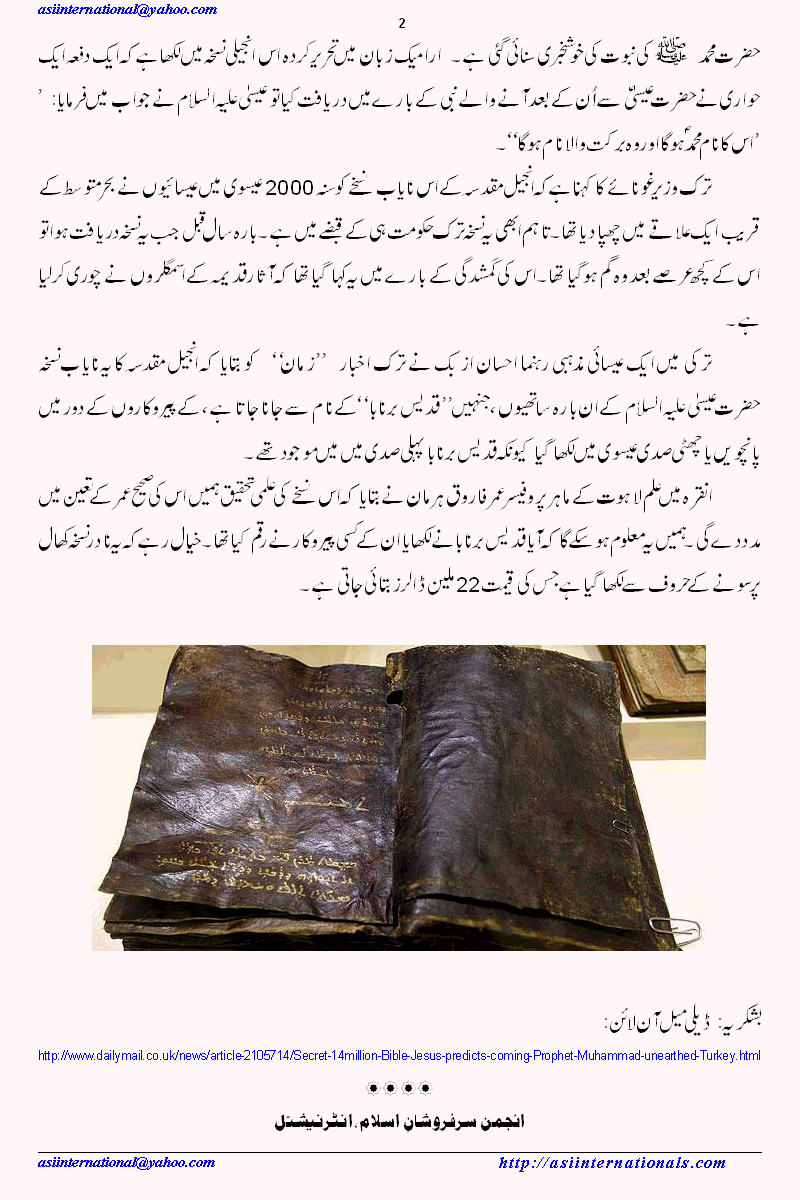 asiinternational@yahoo.com
2
حضرت محمد ﷺ کی نبوت کی خوشخبری سنائی گئی ہے ۔ ارامیک زبان میں تحریر کردہ اس انجیلی نسخہ میں لکھا ہے کہ ایک دفعہ ایک
حواری نے حضرت عیسیٰؑ سے اُن کے بعد آنے والے نبی کے بارے میں دریافت کیا تو عیسیٰ علیہ السلام نے جواب میں فرمایا: ’
’اس کا نام محمدؐ ہوگا اور وہ برکت والا نام ہوگا‘‘۔
ترک وزیر غونائے کا کہنا ہے کہ انجیل مقدسہ کے اس نایاب نسخے کو سنہ 2000 عیسوی میں عیسائیوں نے بحر متوسط کے
قریب ایک علاقے میں چھپا دیا تھا۔ تاہم ابھی یہ نسخہ ترک حکومت ہی کے قبضے میں ہے۔ بارہ سال قبل جب یہ نسخہ دریافت ہوا تو
اس کے کچھ عرصے بعد وہ گم ہو گیا تھا۔ اس کی گمشدگی کے بارے میں یہ کہا گیا تھا کہ آثار قدیمہ کے اسمگلروں نے چوری کر لیا
ہے۔
ترکی میں ایک عیسائی مذہبی رہنما احسان ازبک نے ترک اخبار ’’زمان‘‘ کو بتایا کہ انجیل مقدسہ کا یہ نایاب نسخہ
حضرت عیسیٰ علیہ السلام کے ان بارہ ساتھیوں ،جنہیں ’’قدیس برنابا‘‘ کے نام سے جانا جاتا ہے، کے پیروکاروں کے دور میں
پانچویں یا چھٹی صدی عیسوی میں لکھا گیا کیونکہ قدیس برنابا پہلی صدی میں میں موجود تھے ۔
انقرہ میں علم لاہوت کے ماہر پروفیسر عمر فاروق ہرمان نے بتایا کہ اس نسخے کی علمی تحقیق ہمیں اس کی صحیح عمر کے تعین میں
مدد دے گی ۔ ہمیں یہ معلوم ہو سکے گا کہ آیا قدیس برنابا نے لکھا یا ان کے کسی پیروکار نے رقم کیا تھا۔ خیال رہے کہ یہ نادر نسخہ کھال
پر سونے کے حروف سے لکھا گیا ہے جس کی قیمت 22 ملین ڈالرز بتائی جاتی ہے ۔
بشکریہ: ڈیلی میل آن لائن:
http://www.dailymail.co.uk/news/article-2105714/Secret-14million-Bible-Jesus-predicts-coming-Prophet-Muhammad-unearthed-Turkey.html
انجمن سرفروشان اسلام، انٹرنیشنل
asiinternational@yahoo.com
http://asiinternationals.com